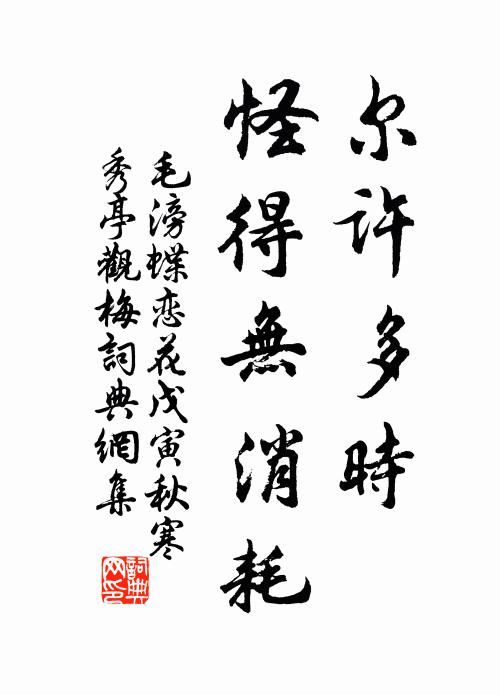 尔许多時
怪得無消耗
毛滂蝶恋花戊寅秋寒
秀亭觀梅詞典網集
詞典
网印